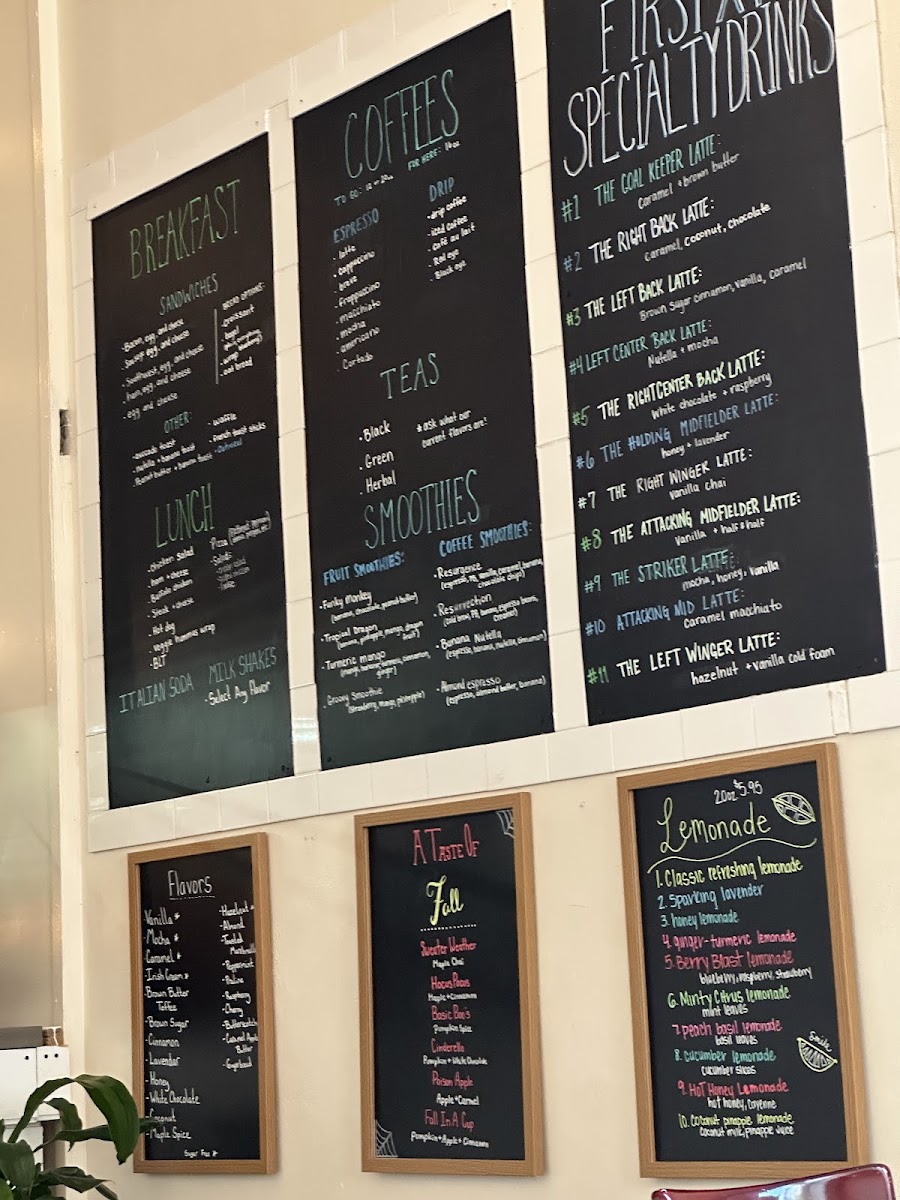 BREAKFAST
SANDWICHES
- Bacon, egg, and cheese
- Sausage, egg, and cheese
- Southwest, egg, and cheese
- ham, egg, and cheese
- egg and cheese
BREAD OPTIONS:
- Croissant
- bagel
- oat bread
OTHER:
- avocado toast
- nutella + banana toast
- Peanut butter + banana toast
- waffle
- French toast sticks
- Oatmeal
LUNCH
- chicken salad
- ham + cheese
- Buffalo chicken
- Steak + cheese
- Hot dog
- veggie hummus wrap
- BLT
Pizza
- Salads:
ITALIAN SODA
MILK SHAKES
- Select Any Flavor
COFFEES
TO GO: 12 or 20oz
FOR HERE: 16oz
ESPRESSO
- latte
- cappuccino
- breve
- frappuccino
- macchiato
- mocha
- americano
- Cortado
DRIP
- drip coffee
- iced coffee
- Café au lait
- Red eye
- Black eye
TEAS
- Black
- Green
- Herbal
* ask what our
current flavors are!
SMOOTHIES
FRUIT SMOOTHIES:
- Funky Monkey
(banana, chocolate, peanut butter)
- Tropical Dragon
(banana, pineapple, mango, dragon
fruit)
- Turmeric mango
(mango, banana, turmeric, cinnamon,
ginger)
- Groovy Smoothie
(strawberry, mango, pineapple)
COFFEE SMOOTHIES:
- Resurgence
(espresso, PB, vanilla, caramel, banana,
chocolate chips)
- Resurrection
(cold brew, PB, banana, espresso beans,
creamer)
- Banana Nutella
(espresso, banana, nutella, cinnamon)
- Almond espresso
(espresso, almond butter, banana)
FIRST XI
SPECIALTY DRINKS
#1 THE GOAL KEEPER LATTE:
Caramel + brown butter
#2 THE RIGHT BACK LATTE:
caramel, coconut, chocolate
#3 THE LEFT BACK LATTE:
Brown sugar cinnamon, vanilla, caramel
#4 LEFT CENTER BACK LATTE:
Nutella + mocha
#5 THE RIGHT CENTER BACK LATTE:
white chocolate + raspberry
#6 THE HOLDING MIDFIELDER LATTE:
honey + lavender
#7 THE RIGHT WINGER LATTE:
Vanilla chai
#8 THE ATTACKING MIDFIELDER LATTE:
Vanilla + half + half
#9 THE STRIKER LATTE:
mocha, honey, vanilla
#10 ATTACKING MID LATTE:
Caramel macchiato
#11 THE LEFT WINGER LATTE:
hazelnut + vanilla cold foam
Flavors
- Vanilla *
- Mocha *
- Caramel *
- Irish Cream *
- Brown Butter
Toffee
- Brown Sugar
- Cinnamon
- Lavendar
- Honey
- White Chocolate
- Coconut
- Maple Spice
- Hazelnut *
- Almond
- Toasted
Marshmallow
- Peppermint
- Praline
- Raspberry
- Cherry
- Butterscotch
- Caramel Apple
Butter
- Gingerbread
Sugar Free *
A Taste Of
Fall
Sweater Weather
Maple Chai
Hocus Pocus
Maple + Cinnamon
Basic Boo's
Pumpkin Spice
Cinderella
Pumpkin + White Chocolate
Poison Apple
Apple + Carmel
Fall In A Cup
Pumpkin + Apple + Cinnamon
20oz $5.95
Lemonade
1. Classic refreshing lemonade
2. Sparkling lavender
3. honey lemonade
4. ginger-turmeric lemonade
5. Berry Blast lemonade
blueberry, raspberry, strawberry
6. Minty Citrus lemonade
mint leaves
7. peach basil lemonade
basil leaves
8. cucumber lemonade
cucumber slices
9. HOT Honey Lemonade
hot honey, cayenne
10. coconut pineapple lemonade
coconut milk, pineapple juice
Smile